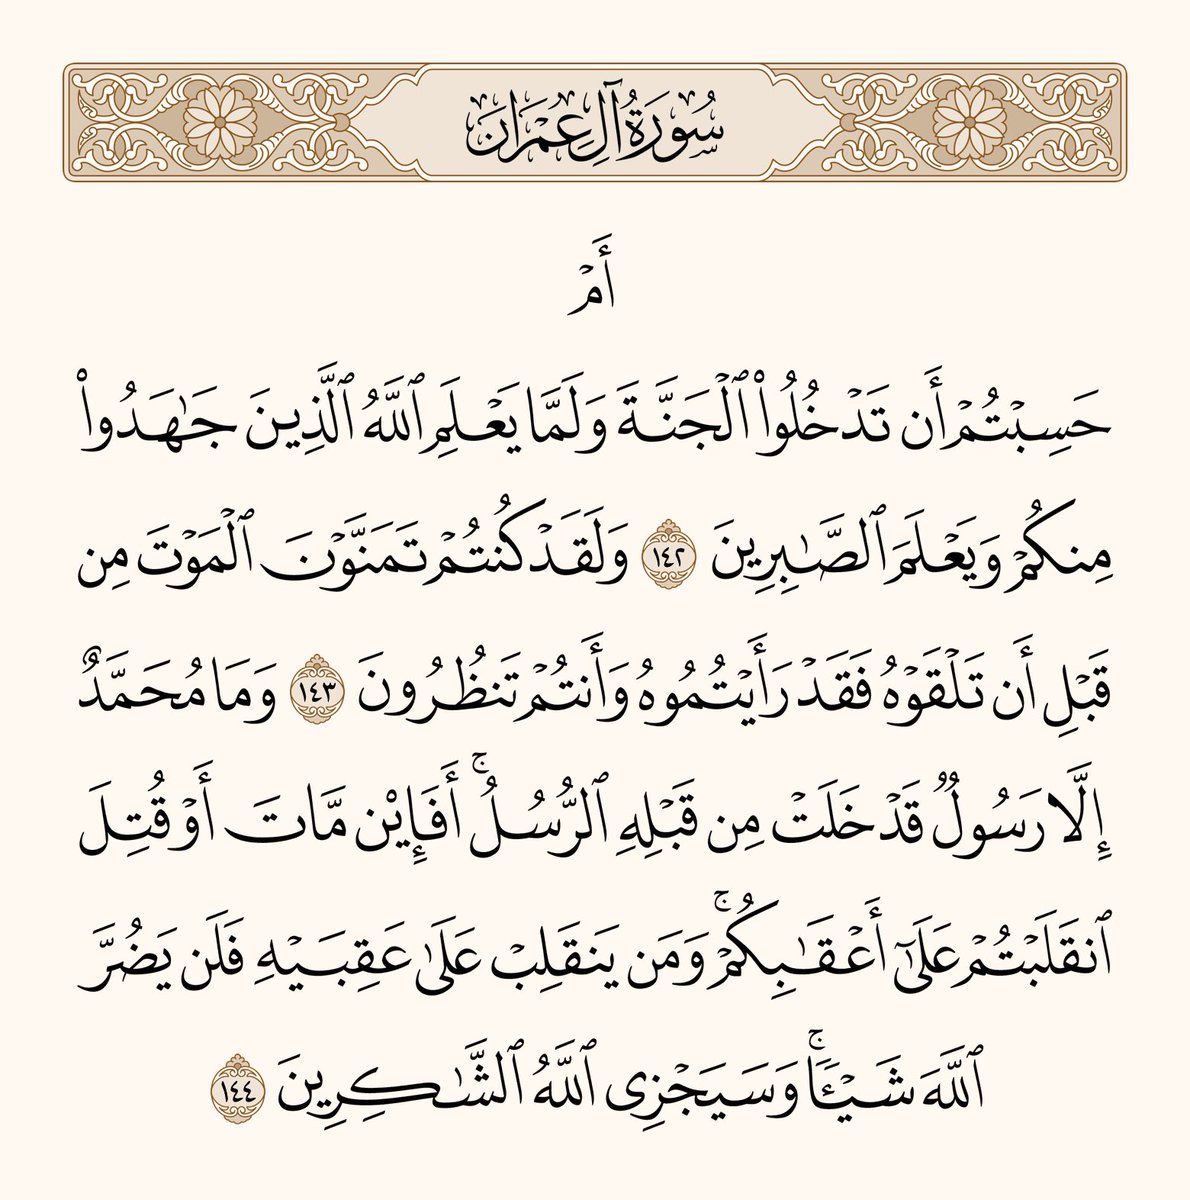 سُورَةُ آلِ عِمْرَانَ
أَمْ
حَسِبْتُمْ أَن تَدْخُلُوا۟ ٱلْجَنَّةَ وَلَمَّا يَعْلَمِ ٱللَّهُ ٱلَّذِينَ جَـٰهَدُوا۟
مِنكُمْ وَيَعْلَمَ ٱلصَّـٰبِرِينَ ١٤٢ وَلَقَدْ كُنتُمْ تَمَنَّوْنَ ٱلْمَوْتَ مِن
قَبْلِ أَن تَلْقَوْهُ فَقَدْ رَأَيْتُمُوهُ وَأَنتُمْ تَنظُرُونَ ١٤٣ وَمَا مُحَمَّدٌ
إِلَّا رَسُولٌ قَدْ خَلَتْ مِن قَبْلِهِ ٱلرُّسُلُ ۚ أَفَإِي۟ن مَّاتَ أَوْ قُتِلَ
ٱنقَلَبْتُمْ عَلَىٰٓ أَعْقَـٰبِكُمْ ۚ وَمَن يَنقَلِبْ عَلَىٰ عَقِبَيْهِ فَلَن يَضُرَّ
ٱللَّهَ شَيْـًٔا ۚ وَسَيَجْزِى ٱللَّهُ ٱلشَّـٰكِرِينَ ١٤٤